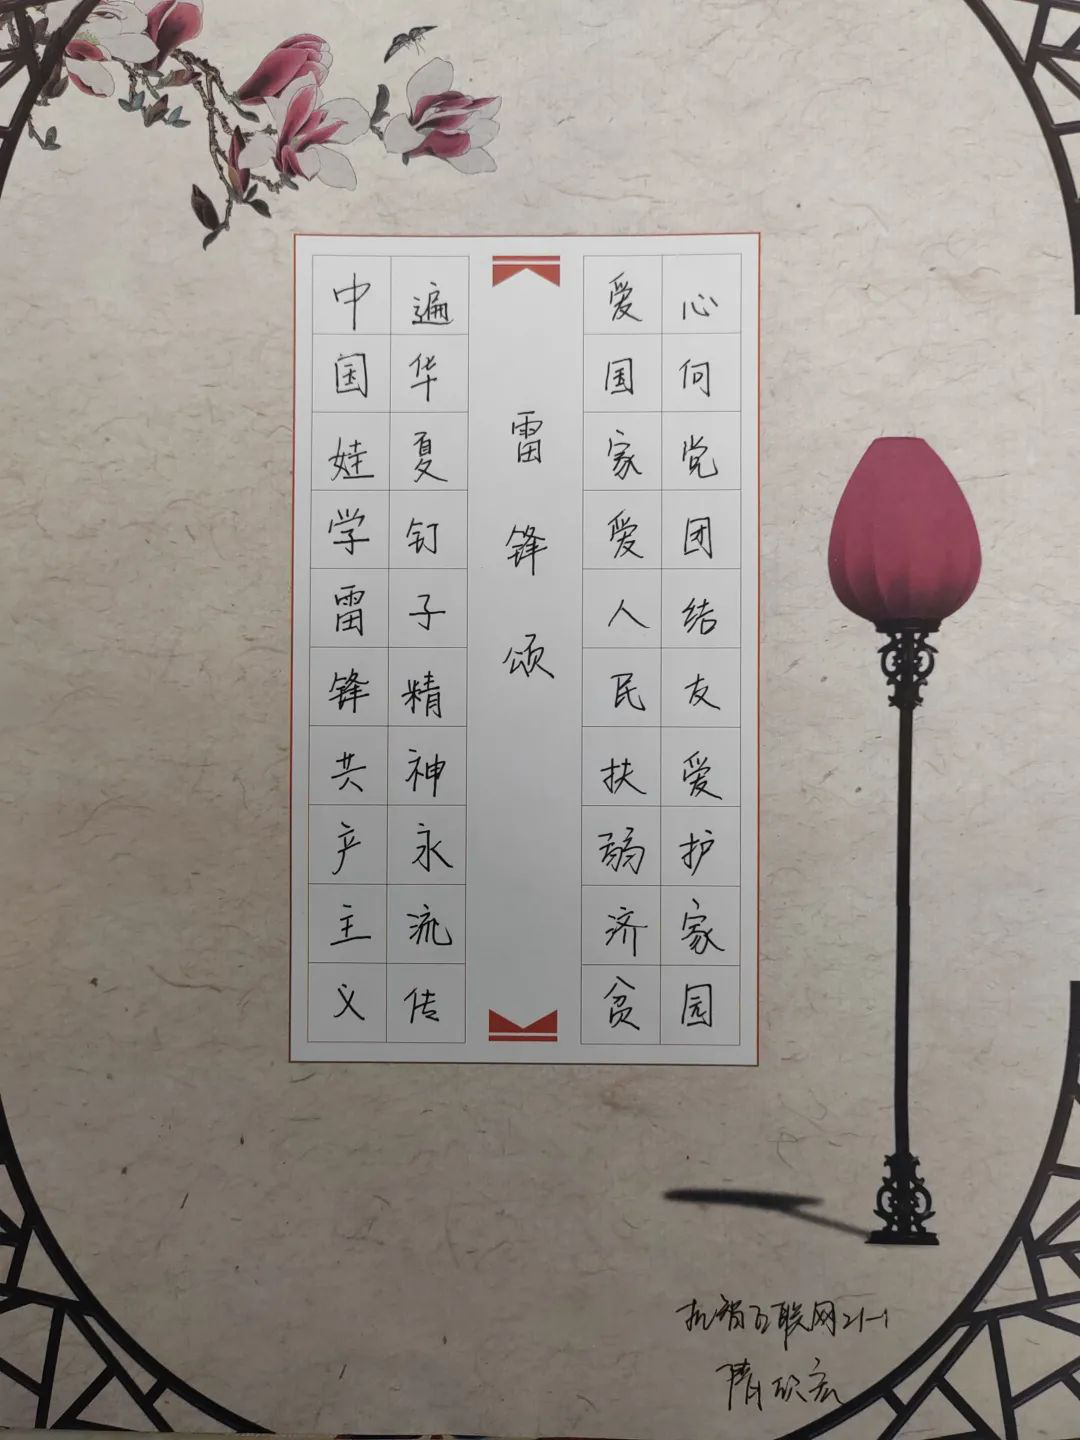 中国娃学雷锋共产主义
遍华夏钉子精神永流传
雷锋颂
爱国家爱人民扶弱济贫
心何党团结友爱护家园
互联网21-1